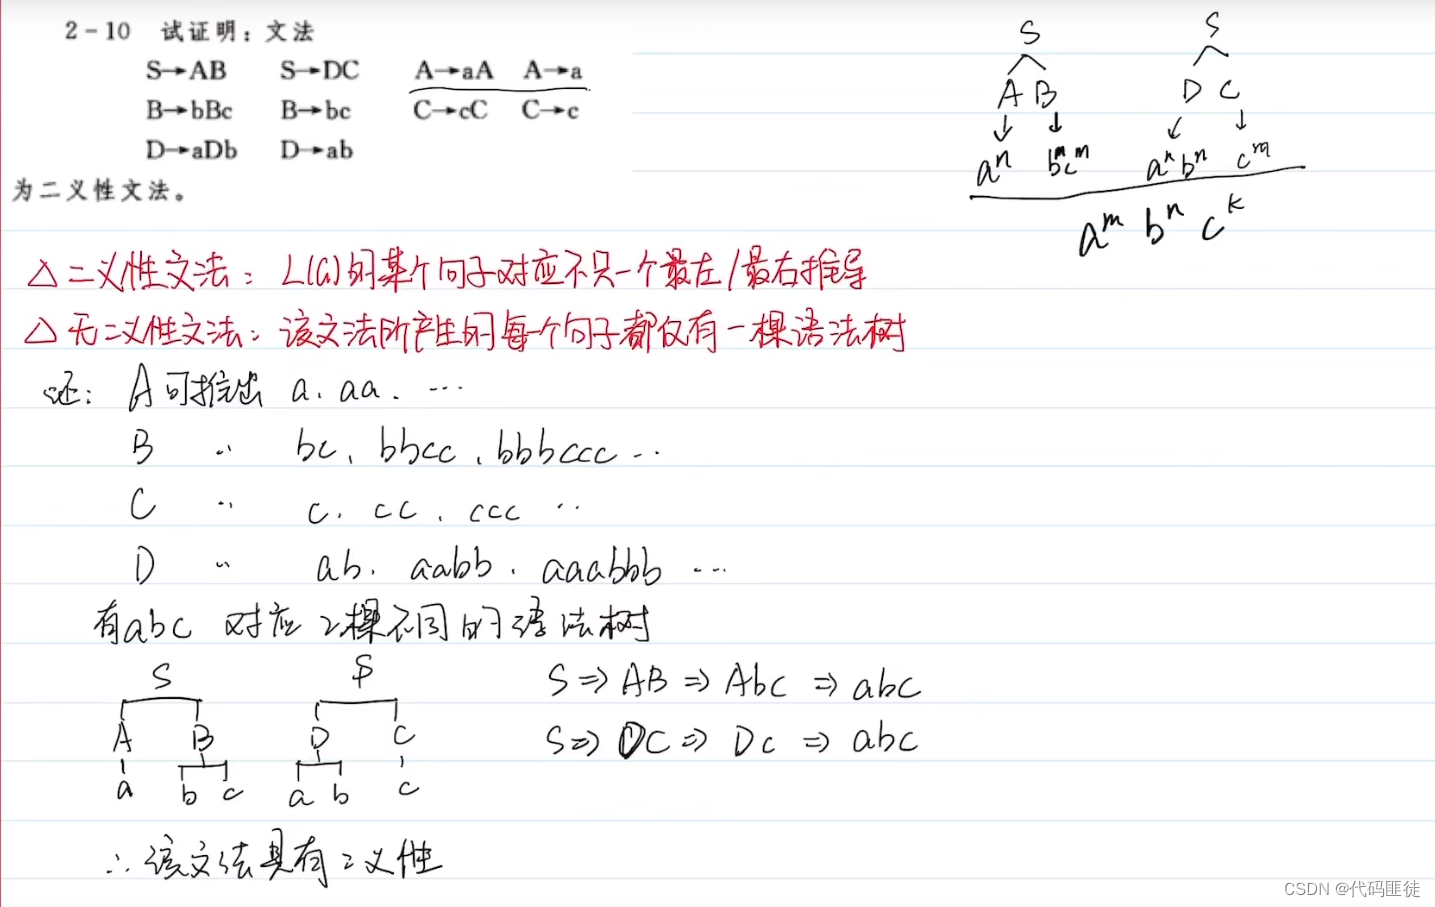 2-10 试证明：文法
S→AB S→DC A→aA A→a
B→bBc B→bc C→cC C→c
D→aDb D→ab
为二义性文法。
S S
A B D C
↓ ↓ ↓ ↓
aⁿ bᵐcᵐ aⁿbⁿ cᵐ
aᵐ bⁿ cᵏ
△二义性文法：L(G)的某个句子对应不只一个最左/最右推导
△无二义性文法：该文法所产生的每个句子都仅有一棵语法树
证：A可推出 a、aa、…
B 〃 bc、bbcc、bbbccc…
C 〃 c、cc、ccc …
D 〃 ab、aabb、aaabbb …
有abc 对应2棵不同的语法树
S S S⇒AB⇒Abc⇒abc
A B D C S⇒DC⇒Dc⇒abc
a b c a b c
∴该文法具有二义性
CSDN @代码匪徒